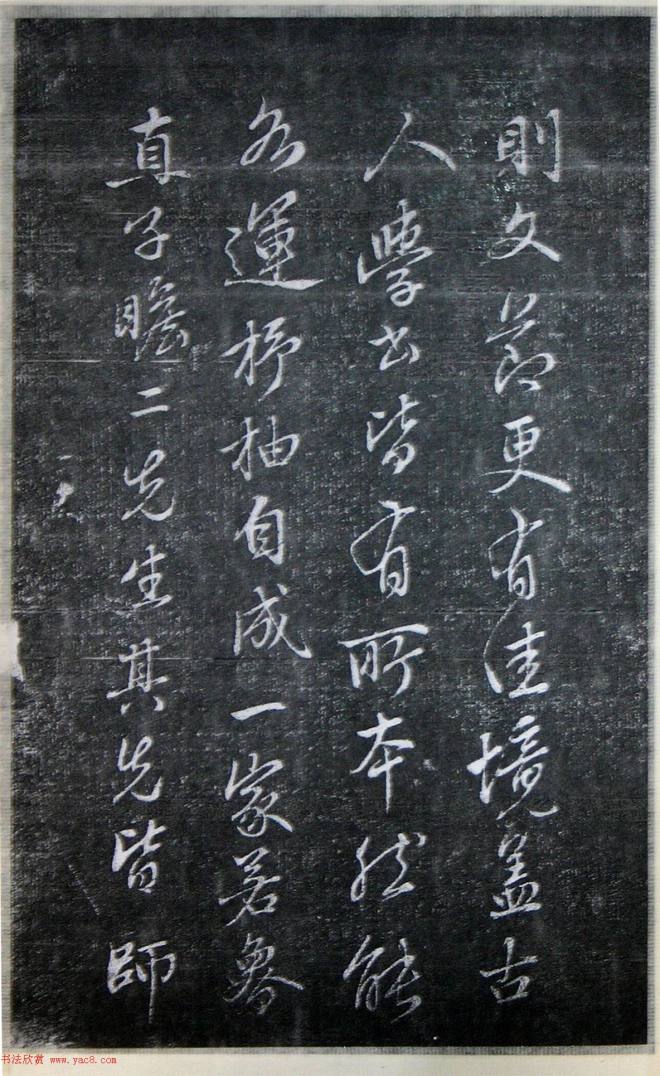 則文節更有佳境盖古
人學書皆有所本然能
各運杼柚自成一家若魯
直子瞻二先生其先皆師
书法欣赏 www.yac8.com